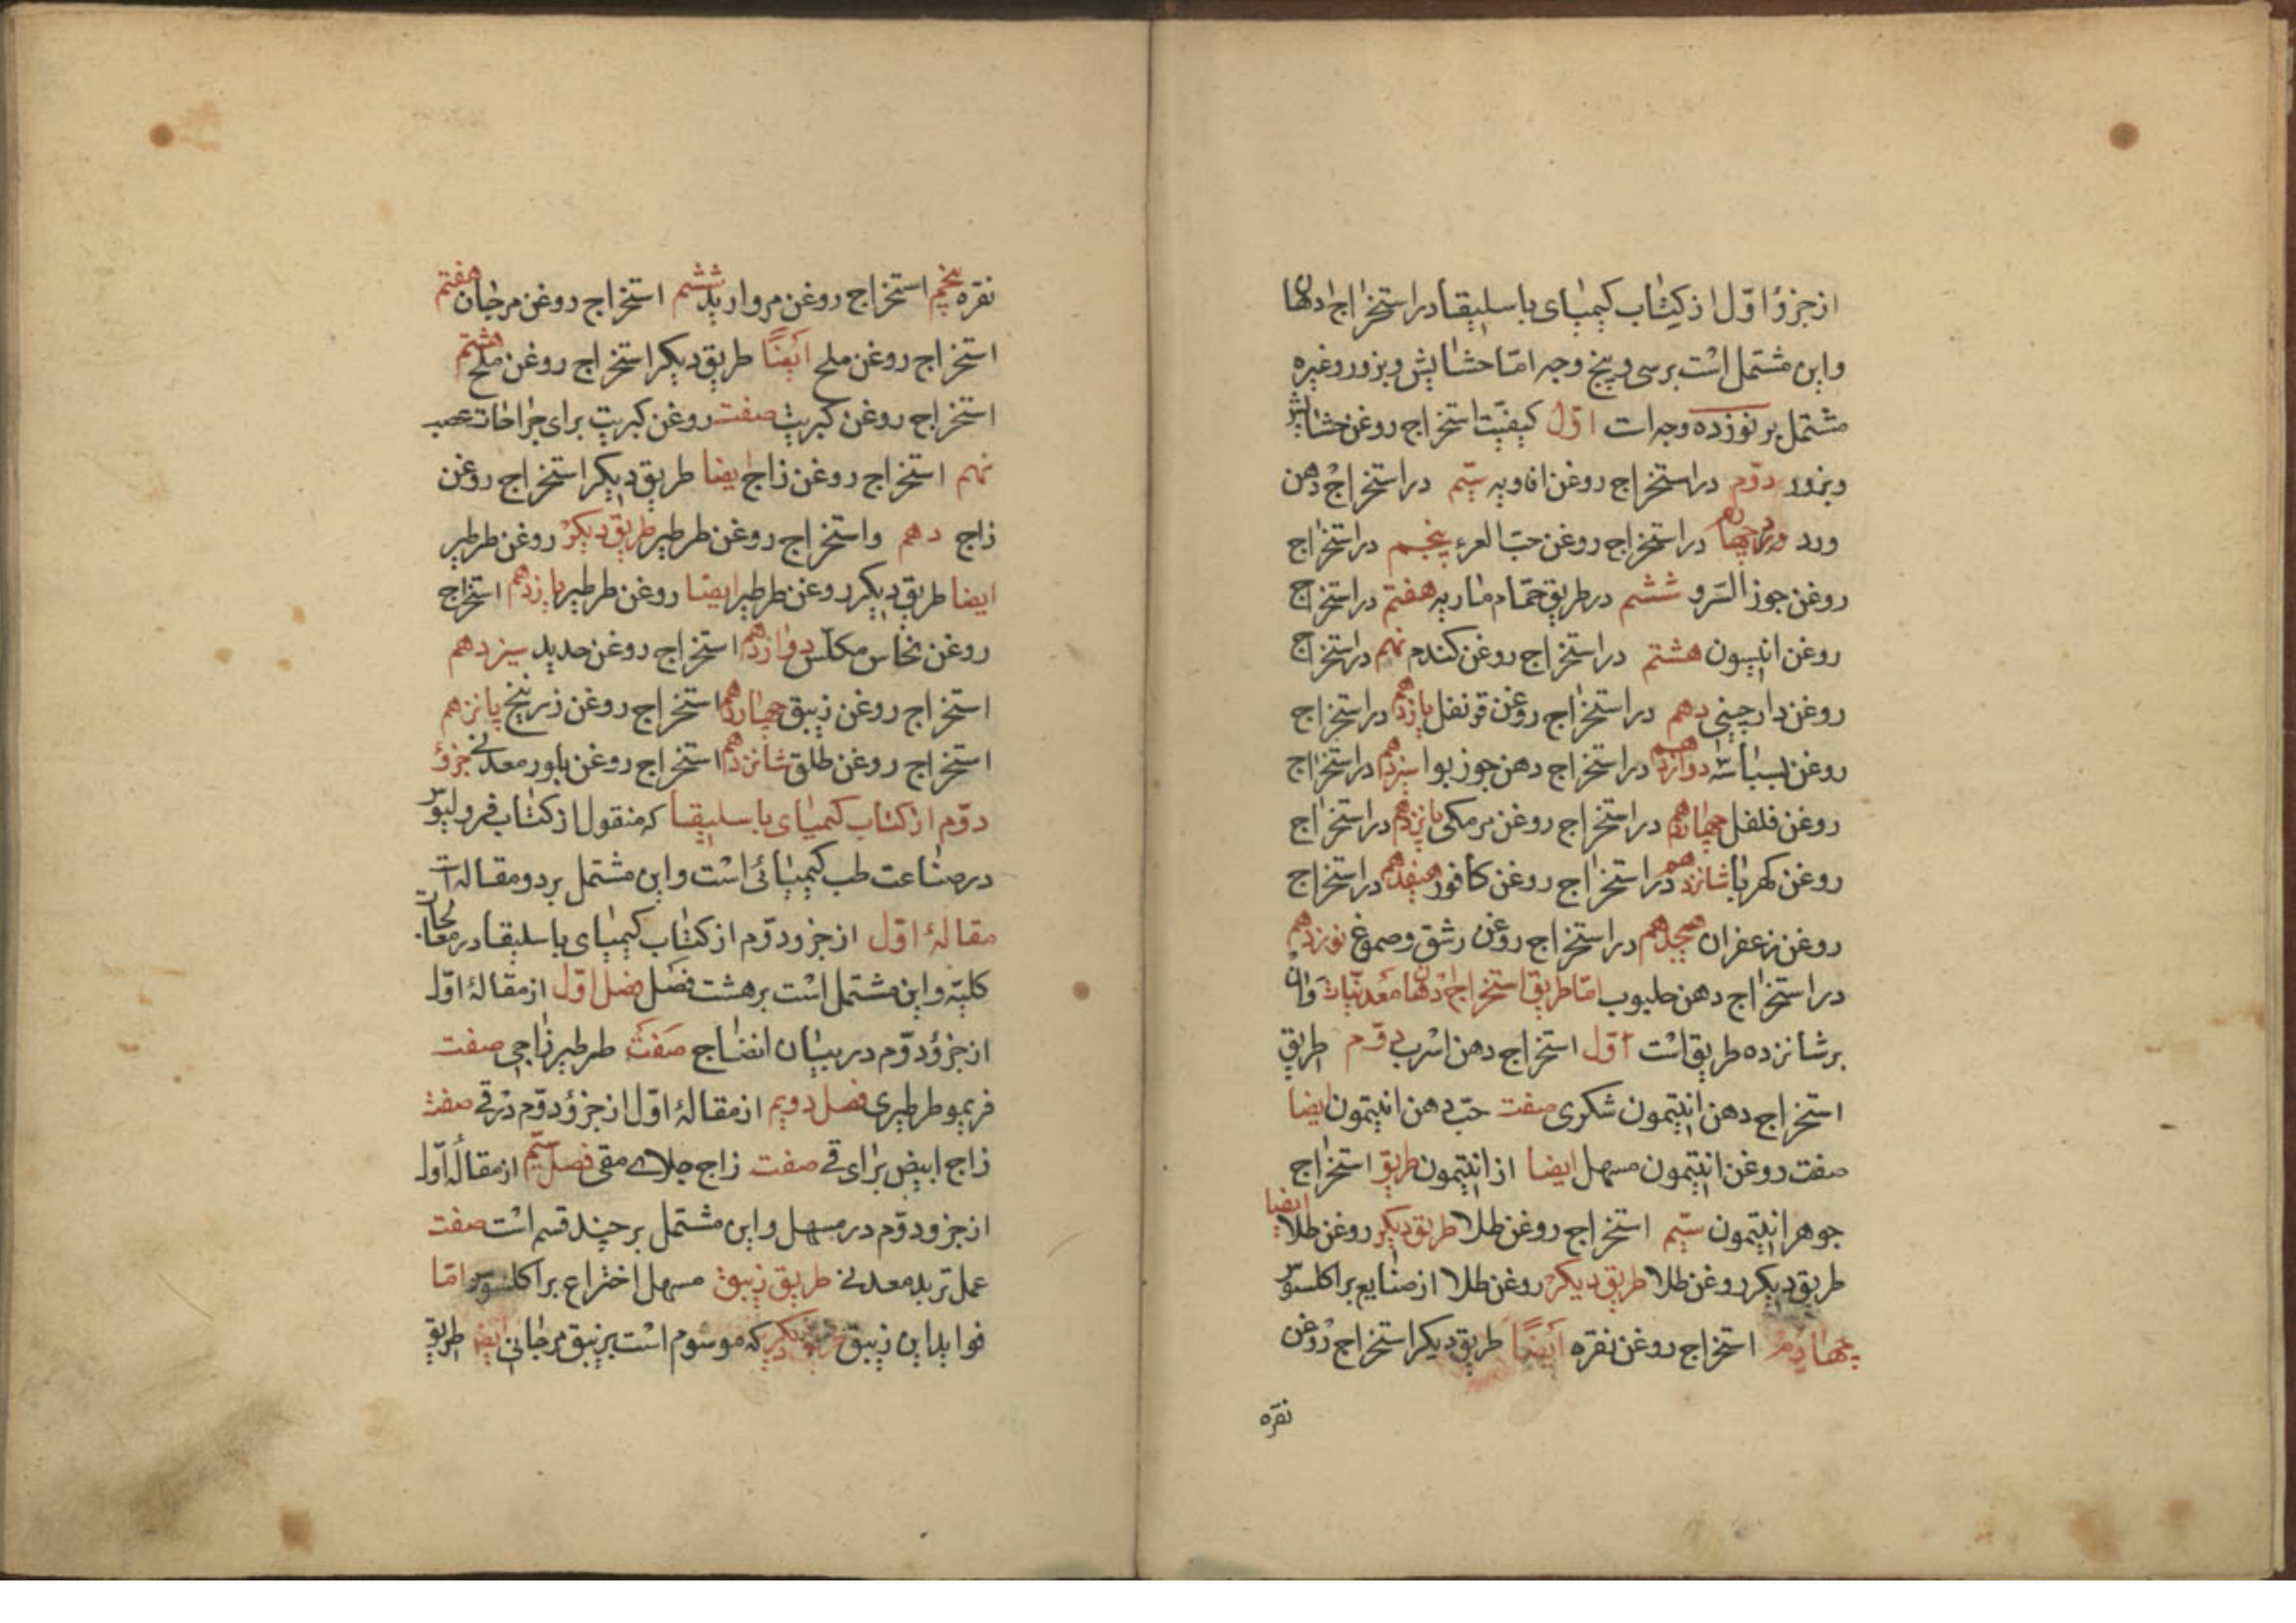 از جزؤ اوّل از کتاب کیمیای باسلیقا در استخراج ادهان
و این مشتمل است بر سی و پنج وجه امّا حشایش و بزور و غیره
مشتمل بر نوزده وجه است اوّل کیفیّت استخراج روغن حشایش
و بزور دوّم در استخراج روغن افاویه سیّم در استخراج دهن
ورد چهارم در استخراج روغن حبّ العرعر پنجم در استخراج
روغن جوز السرو ششم در طریق حمّام ماریه هفتم در استخراج
روغن انیسون هشتم در استخراج روغن کندم نهم در استخراج
روغن دارچینی دهم در استخراج روغن قرنفل یازدهم در استخراج
روغن بسباسه دوازدهم در استخراج دهن جوز بوا سیزدهم در استخراج
روغن فلفل چهاردهم در استخراج روغن مر مکی پانزدهم در استخراج
روغن کهربا شانزدهم در استخراج روغن کافور هفدهم در استخراج
روغن زعفران هیجدهم در استخراج روغن رشق و صموغ نوزدهم
در استخراج دهن حلبوب امّا طریق استخراج دهنها معدنیّات وان
بر شانزده طریق است اوّل استخراج دهن اسرب دوّم طریق
استخراج دهن انتیمون شکری صفت حبّ دهن انتیمون ایضا
صفت روغن انتیمون مسهل ایضا از انتیمون طریق استخراج
جوهر انتیمون سیّم استخراج روغن طلا طریق دیکر روغن طلا ایضا
طریق دیکر روغن طلا طریق دیکر روغن طلا از صنایع براکلسوس
چهارم استخراج روغن نقره ایضاً طریق دیکر استخراج روغن
نقره
نقره پنجم استخراج روغن مروارید ششم استخراج روغن مرجان هفتم
استخراج روغن ملح ایضاً طریق دیکر استخراج روغن ملح هشتم
استخراج روغن کبریت صفت روغن کبریت برای جراحات عصب
نهم استخراج روغن زاج ایضا طریق دیکر استخراج روغن
زاج دهم و استخراج روغن طرطیر طریق دیکر روغن طرطیر
ایضا طریق دیکر روغن طرطیر ایضا روغن طرطیر یازدهم استخراج
روغن نحاس مکلّس دوازدهم استخراج روغن حدید سیزدهم
استخراج روغن زیبق چهاردهم استخراج روغن زرنیخ پانزهم
استخراج روغن طلق شانزدهم استخراج روغن بلور معدنی جزؤ
دوّم از کتاب کیمیای باسلیقا که منقول از کتاب قرولیوس
در صناعت طب کیمیائی است و این مشتمل بر دو مقاله است
مقالهٔ اوّل از جزو دوّم از کتاب کیمیای باسلیقا در معالجات
کلیّه و این مشتمل است بر هشت فصل فصل اوّل از مقالهٔ اوّل
از جزؤ دوّم در بیان انضاج صفت طرطیر زاجی صفت
قریمو طرطیری فصل دویم از مقالهٔ اوّل از جزؤ دوّم در قی صفت
زاج ابیض برای قی صفت زاج جلای مقی فصل سیّم از مقالهٔ اوّل
از جزو دوّم در مسهل و این مشتمل بر چند قسم است صفت
عمل تربد معدنی طریق زیبق مسهل اختراع براکلسوس امّا
فواید این زیبق طریق دیکر که موسوم است بزیبق مرجانی ایضا طریق